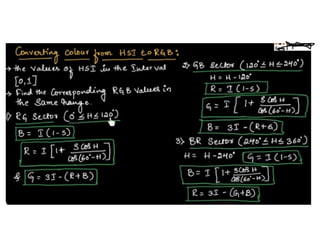 Converting Colour from HSI to RGB:
→ the values of HSI in the Interval
[0,1]
→ Find the corresponding RGB values in
the Same range.
1) RG Sector (0° ≤ H ≤ 120°)
B = I (1-S)
R = I [1 + S cos H / cos(60°-H)]
& G = 3I - (R+B)
2) GB Sector (120° ≤ H ≤ 240°)
H = H - 120°
R = I (1-S)
G = I [1 + S cos H / cos(60°-H)]
B = 3I - (R+G)
3) BR Sector (240° ≤ H ≤ 360°)
H = H - 240° G = I (1-S)
B = I [1 + S cos H / cos(60°-H)]
R = 3I - (G+B)